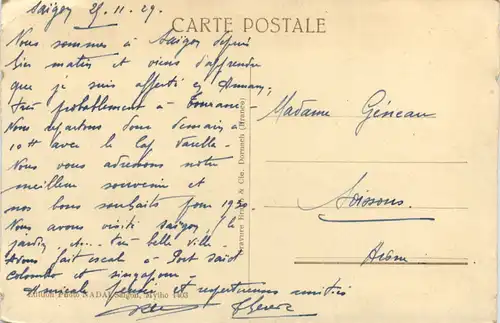 Saigon 25.11.29.
CARTE POSTALE
Nous sommes à Saigon depuis
hier matin et viens d'apprendre
que je suis affecté en Annam,
très probablement à Tourane.
Nous repartons donc demain à
10H avec le Cap Varella.
Nous vous adressons notre
meilleur souvenir et
nos bons souhaits pour 1930.
Nous avons visité Saigon, le
jardin etc... Très belle ville.
Avons fait escale à Port Saïd
Colombo et Singapour.
Amicale pensée et respectueuses amitiés
Madame Géneau
Soissons.
Aisne.
& Cie. Dornach (France)
Edition Photo NADAL Saigon, Mytho 1403